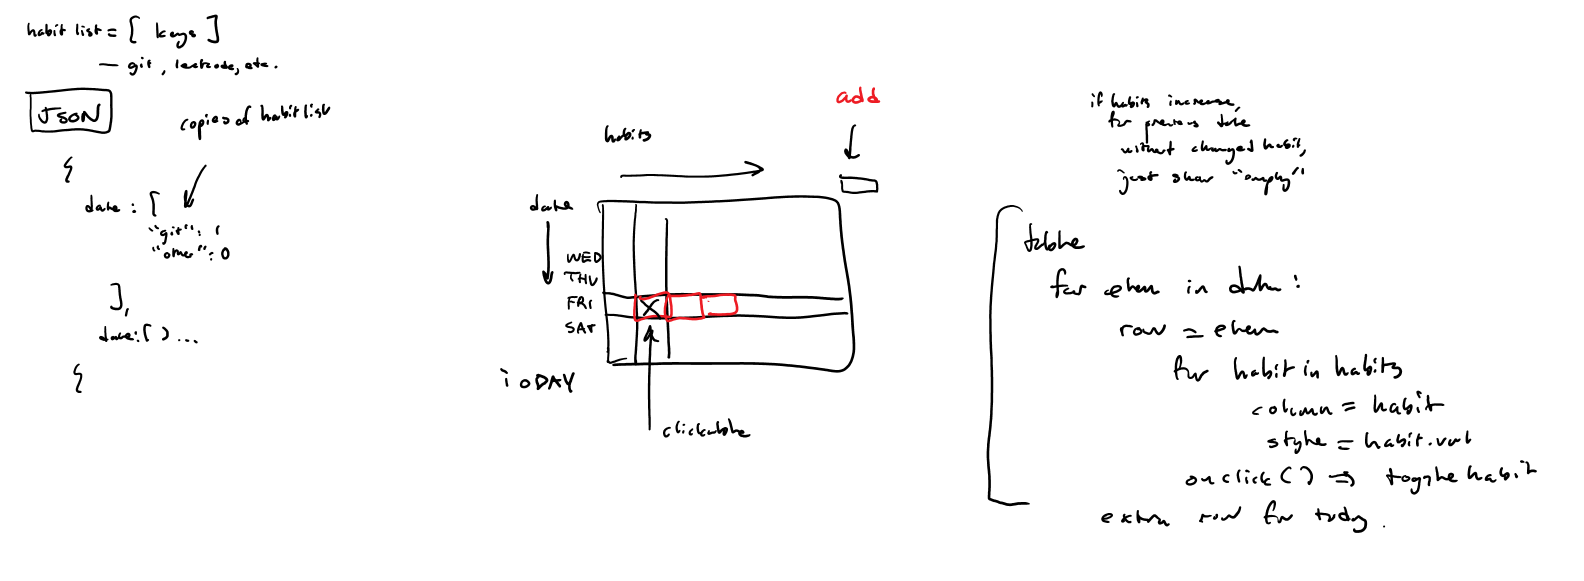 habit list = [ keys ]
— git, leetcode, etc.
JSON
copies of habit list
{
date : [
"git" : 1
"other" : 0
],
date: [ ) ...
{
add
habits
date
WED
THU
FRI
X
SAT
TODAY
clickable
if habits increase,
for previous date
without changed habit,
just show "empty"
table
for elem in data :
row = elem
for habit in habits
column = habit
style = habit.val
onclick ( ) => toggle habit
extra row for today.